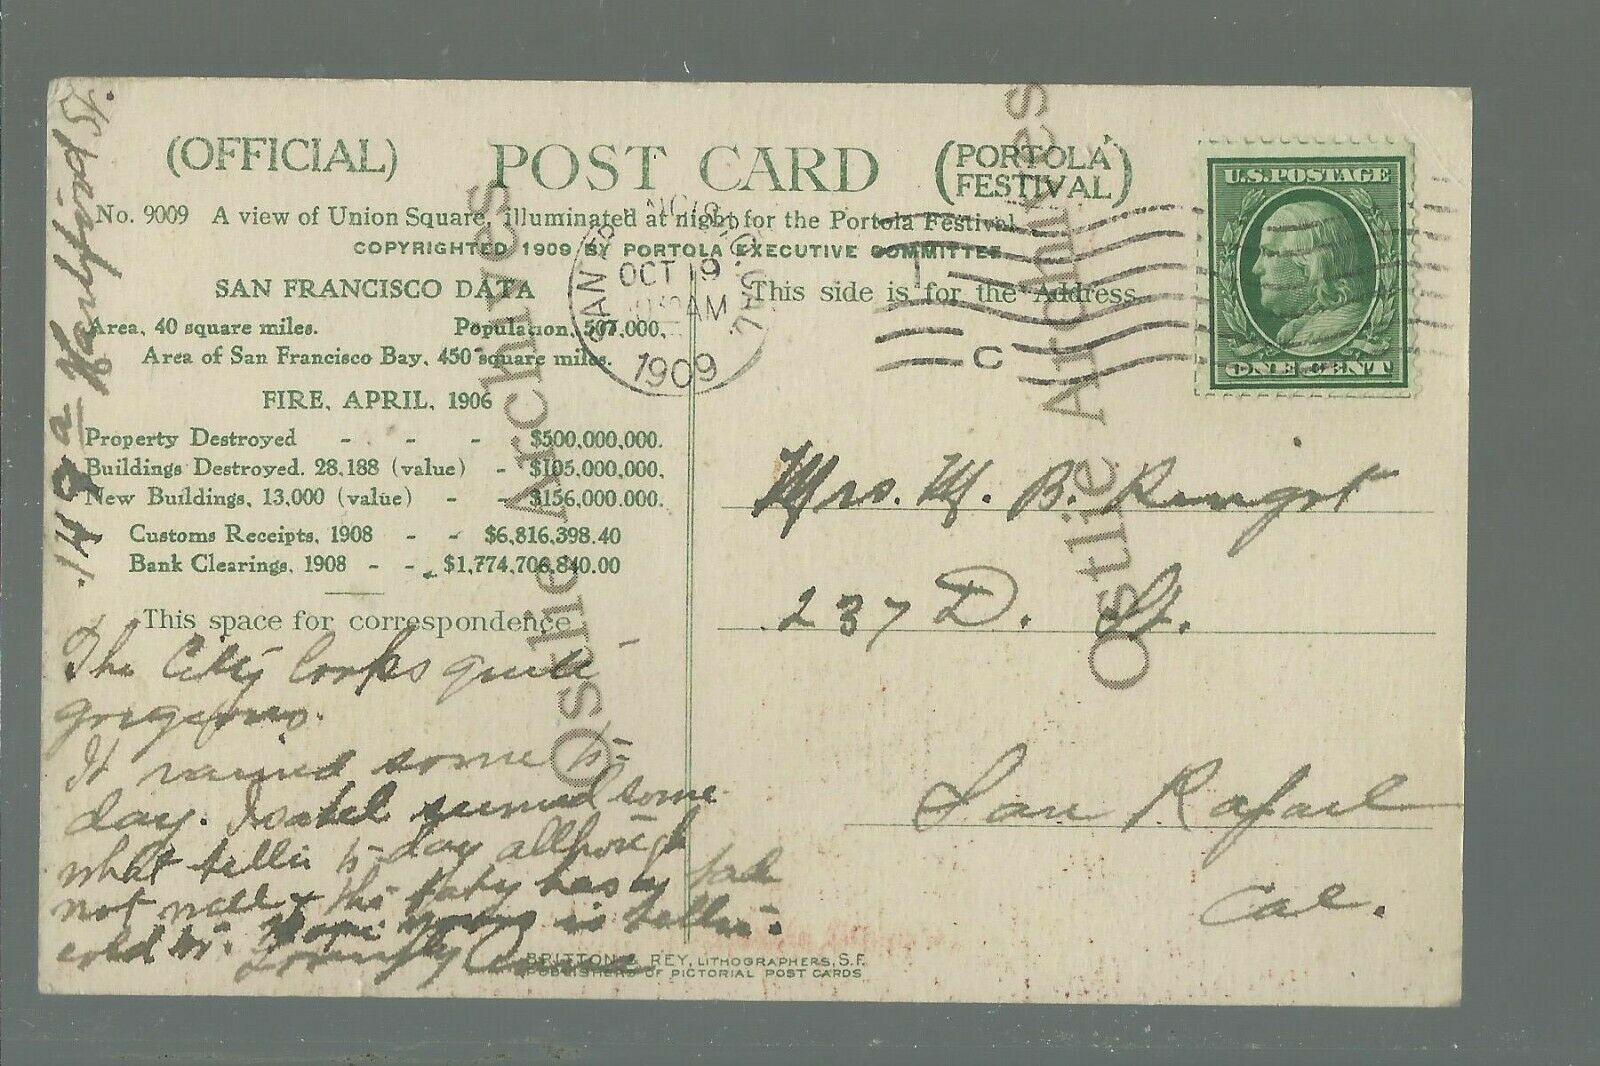 (OFFICIAL) POST CARD (PORTOLA FESTIVAL)
No. 9009 A view of Union Square, illuminated at night for the Portola Festival.
COPYRIGHTED 1909 BY PORTOLA EXECUTIVE COMMITTEE
SAN FRANCISCO DATA
Area, 40 square miles. Population, 507,000.
Area of San Francisco Bay, 450 square miles.
FIRE, APRIL, 1906
Property Destroyed - - - $500,000,000.
Buildings Destroyed, 28,188 (value) - $105,000,000.
New Buildings, 13,000 (value) - - $156,000,000.
Customs Receipts, 1908 - - $6,816,398.40
Bank Clearings, 1908 - - $1,774,706,840.00
This space for correspondence
The City looks quite
gorgeous.
It rained some to-
day. Isabel seemed some
what better to-day although
not well & the baby has a bad
cold too. Hope yours is better.
Lovingly
Hartford St.
This side is for the Address
SAN FRANCISCO, CAL.
OCT 19
AM
1909
C
U.S. POSTAGE
ONE CENT
Mrs. M. B.
237 D. St.
San Rafael
Cal.
BRITTON & REY, LITHOGRAPHERS, S.F.
PUBLISHERS OF PICTORIAL POST CARDS
Ostlie Archives
Ostlie Archives